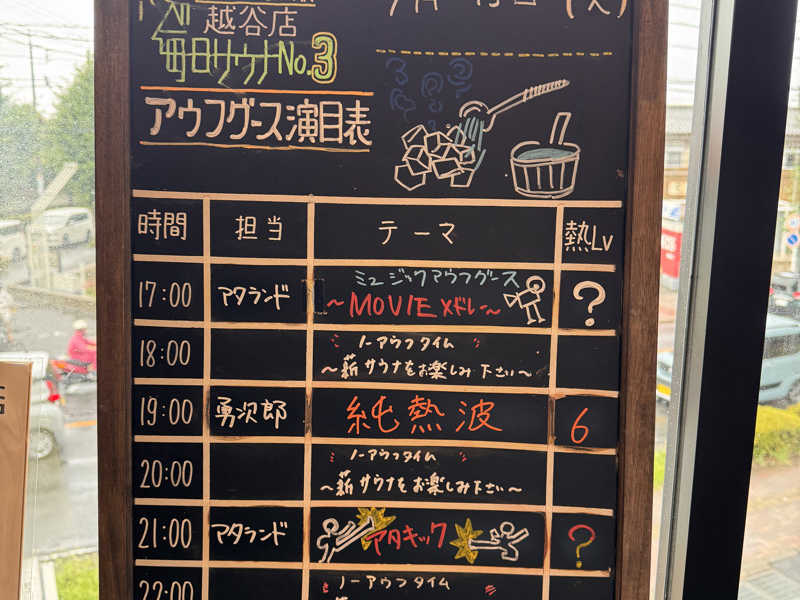 越谷店
毎日サウナNo.3
アウフグース演目表
時間 担当 テーマ 熱Lv
17:00 アタランド ミュージックアウフグース ?
～MOVIEメドレー～
18:00 ノーアウフタイム
～薪サウナをお楽しみ下さい～
19:00 勇次郎 純熱波 6
20:00 ノーアウフタイム
～薪サウナをお楽しみ下さい～
21:00 アタランド アタキック ?
22:00 ノーアウフタイム